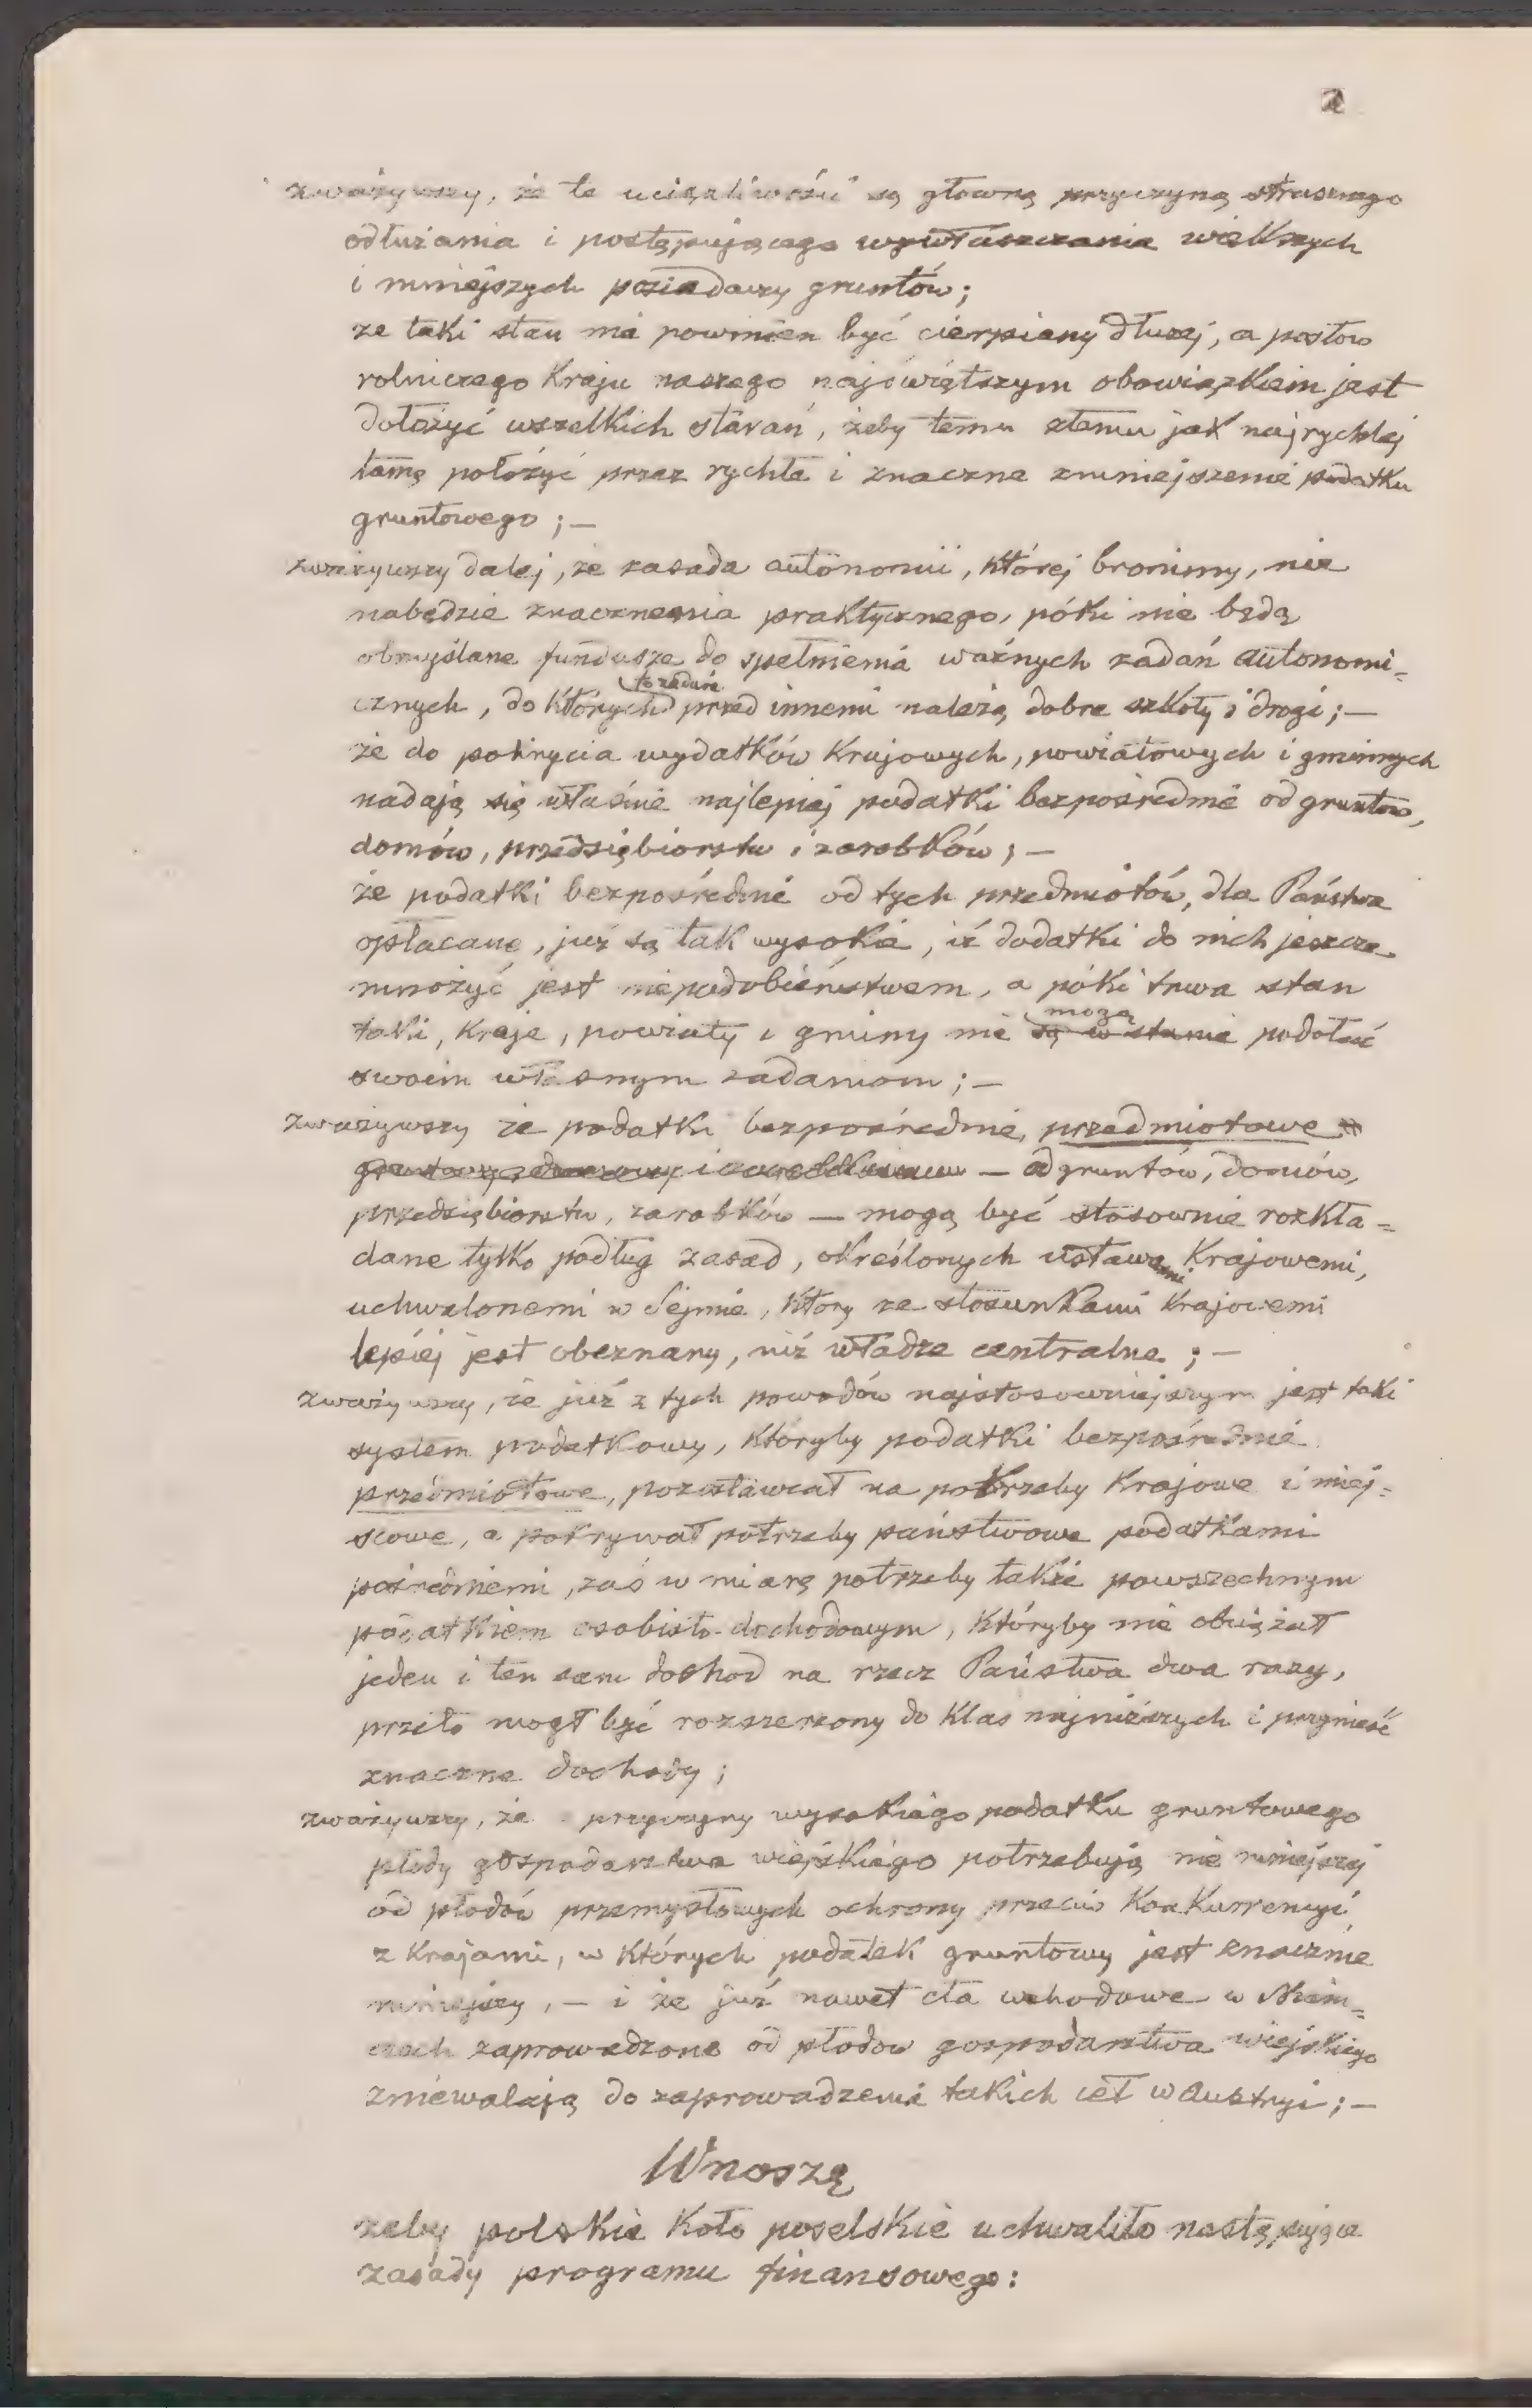 2
zważywszy, że te uciążliwości są główną przyczyną strasznego
odłużania i postępującego wywłaszczania większych
i mniejszych posiadaczy gruntów;
że taki stan nie powinien być cierpiany dłużej, a posłów
rolniczego Kraju naszego najświętszym obowiązkiem jest
dołożyć wszelkich starań, żeby temu złemu jak najrychlej
tamę położyć przez rychłe i znaczne zmniejszenie podatku
gruntowego; —
zważywszy dalej, że zasada autonomii, której bronimy, nie
nabędzie znaczenia praktycznego, póki nie będą
obmyślane fundusze do spełnienia ważnych zadań autonomi=
cznych, do których przed innemi należą dobre szkoły i drogi; —
że do pokrycia wydatków Krajowych, powiatowych i gminnych
nadają się właśnie najlepiej podatki bezpośrednie od gruntów,
domów, przedsiębiorstw i zarobków; —
że podatki bezpośrednie od tych przedmiotów, dla Państwa
opłacane, już są tak wysokie, iż dodatki do nich jeszcze
mnożyć jest niepodobieństwem, a póki trwa stan
taki, Kraje, powiaty i gminy nie są w stanie mogą podołać
swoim własnym zadaniom; —
zważywszy że podatki bezpośrednie, przedmiotowe
— od gruntów, domów,
przedsiębiorstw, zarobków — mogą być stosownie rozkła=
dane tylko podług zasad, określonych ustawami Krajowemi,
uchwalonemi w Sejmie, który ze stosunkami Krajowemi
lepiej jest obeznany, niż władze centralne; —
zważywszy, że już z tych powodów najstosowniejszym jest taki
system podatkowy, któryby podatki bezpośrednie
przedmiotowe, pozostawiał na potrzeby Krajowe i miej=
scowe, a pokrywał potrzeby państwowe podatkami
pośredniemi, zaś w miarę potrzeby także powszechnym
podatkiem osobisto-dochodowym, któryby nie obciążał
jeden i ten sam dochod na rzecz Państwa dwa razy,
przeto mogł być rozszerzony do klas najniższych i przynieść
znaczne dochody;
zważywszy, że z przyczyny wysokiego podatku gruntowego
płody gospodarstwa wiejskiego potrzebują nie mniejszej
od płodów przemysłowych ochrony przeciw Konkurrencyi
z Krajami, w których podatek gruntowy jest znacznie
mniejszy, — i że już nawet cła wchodowe w Niem=
czech zaprowadzone od płodow gospodarstwa wiejskiego
zniewalają do zaprowadzenia takich ceł w Austryi; —
Wnoszę
żeby polskie Koło poselskie uchwaliło następujące
zasady programu finansowego: